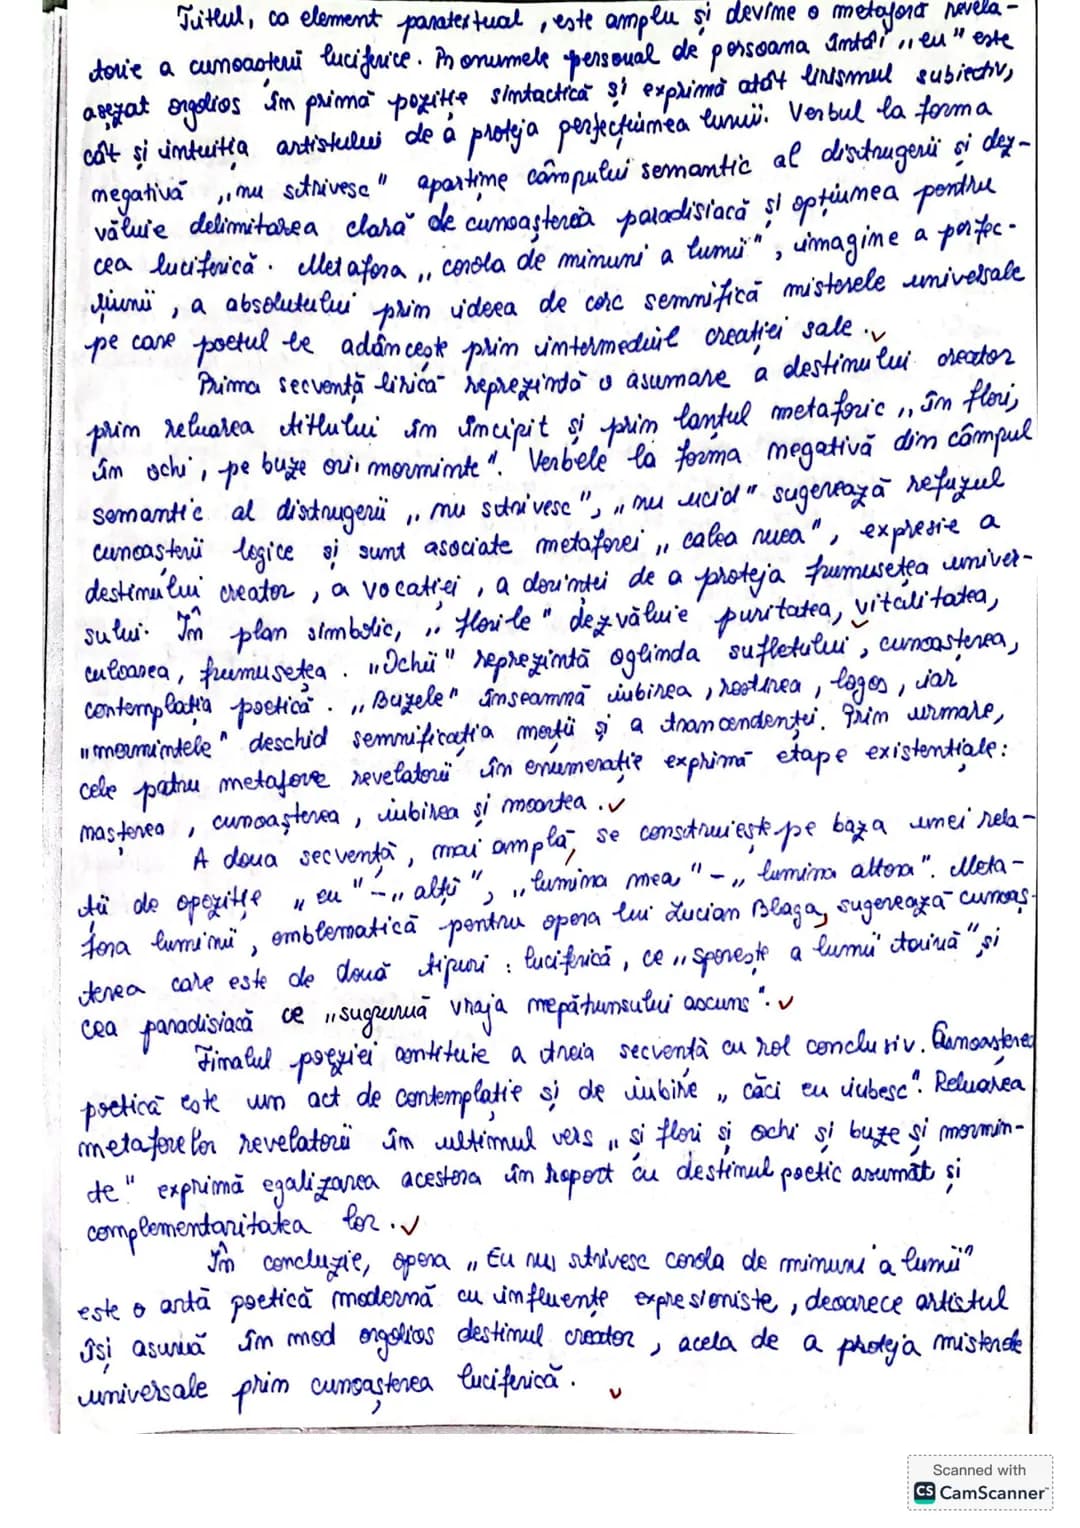 Titlul, ca element paratextual, este amplu și devine o metaforă revela-
torie a cunoașterii luciferice. Pronumele personal de persoana întâi „eu" este
așezat orgolios în prima poziție sintactică și exprimă atât lirismul subiectiv,
cât și intuiția artistului de a proteja perfecțiunea lumii. Verbul la forma
negativă „nu strivesc" aparține câmpului semantic al distrugerii și dez-
văluie delimitarea clară de cunoașterea paradisiacă și opțiunea pentru
cea luciferică. Metafora „corola de minuni a lumii", imagine a perfec-
țiunii, a absolutului prin ideea de cerc semnifică misterele universale
pe care poetul le adâncește prin intermediul creației sale.
Prima secvență lirică reprezintă o asumare a destinului creator
prin reluarea titlului în incipit și prin lanțul metaforic „în flori,
în ochi, pe buze ori morminte". Verbele la forma negativă din câmpul
semantic al distrugerii „nu strivesc", „nu ucid" sugerează refuzul
cunoașterii logice și sunt asociate metaforei „calea mea", expresie a
destinului creator, a vocației, a dorinței de a proteja frumusețea univer-
sului. În plan simbolic, „florile" dezvăluie puritatea, vitalitatea,
culoarea, frumusețea. „Ochii" reprezintă oglinda sufletului, cunoașterea,
contemplația poetică. „Buzele" înseamnă iubirea, rostirea, logos, iar
„mormintele" deschid semnificația morții și a trancendenței. Prin urmare,
cele patru metafore revelatorii în enumerație exprimă etape existențiale:
nașterea, cunoașterea, iubirea și moartea.
A doua secvență, mai amplă, se construiește pe baza unei rela-
ții de opoziție „eu" - „alții", „lumina mea" - „lumina altora". Meta-
fora luminii, emblematică pentru opera lui Lucian Blaga, sugerează cunoaș-
terea care este de două tipuri: luciferică, ce „sporește a lumii taină" și
cea paradisiacă ce „sugrumă vraja nepătrunsului ascuns".
Finalul poeziei contituie a treia secvență cu rol conclusiv. Cunoașterea
poetică este un act de contemplație și de iubire „căci eu iubesc". Reluarea
metaforelor revelatorii în ultimul vers „și flori și ochi și buze și mormin-
te" exprimă egalizarea acestora în raport cu destinul poetic asumat și
complementaritatea lor.
În concluzie, opera „Eu nu strivesc corola de minuni a lumii"
este o artă poetică modernă cu influențe expresioniste, deoarece artistul
își asumă în mod orgolios destinul creator, acela de a proteja misterele
universale prin cunoașterea luciferică.
Scanned with
CS CamScanner